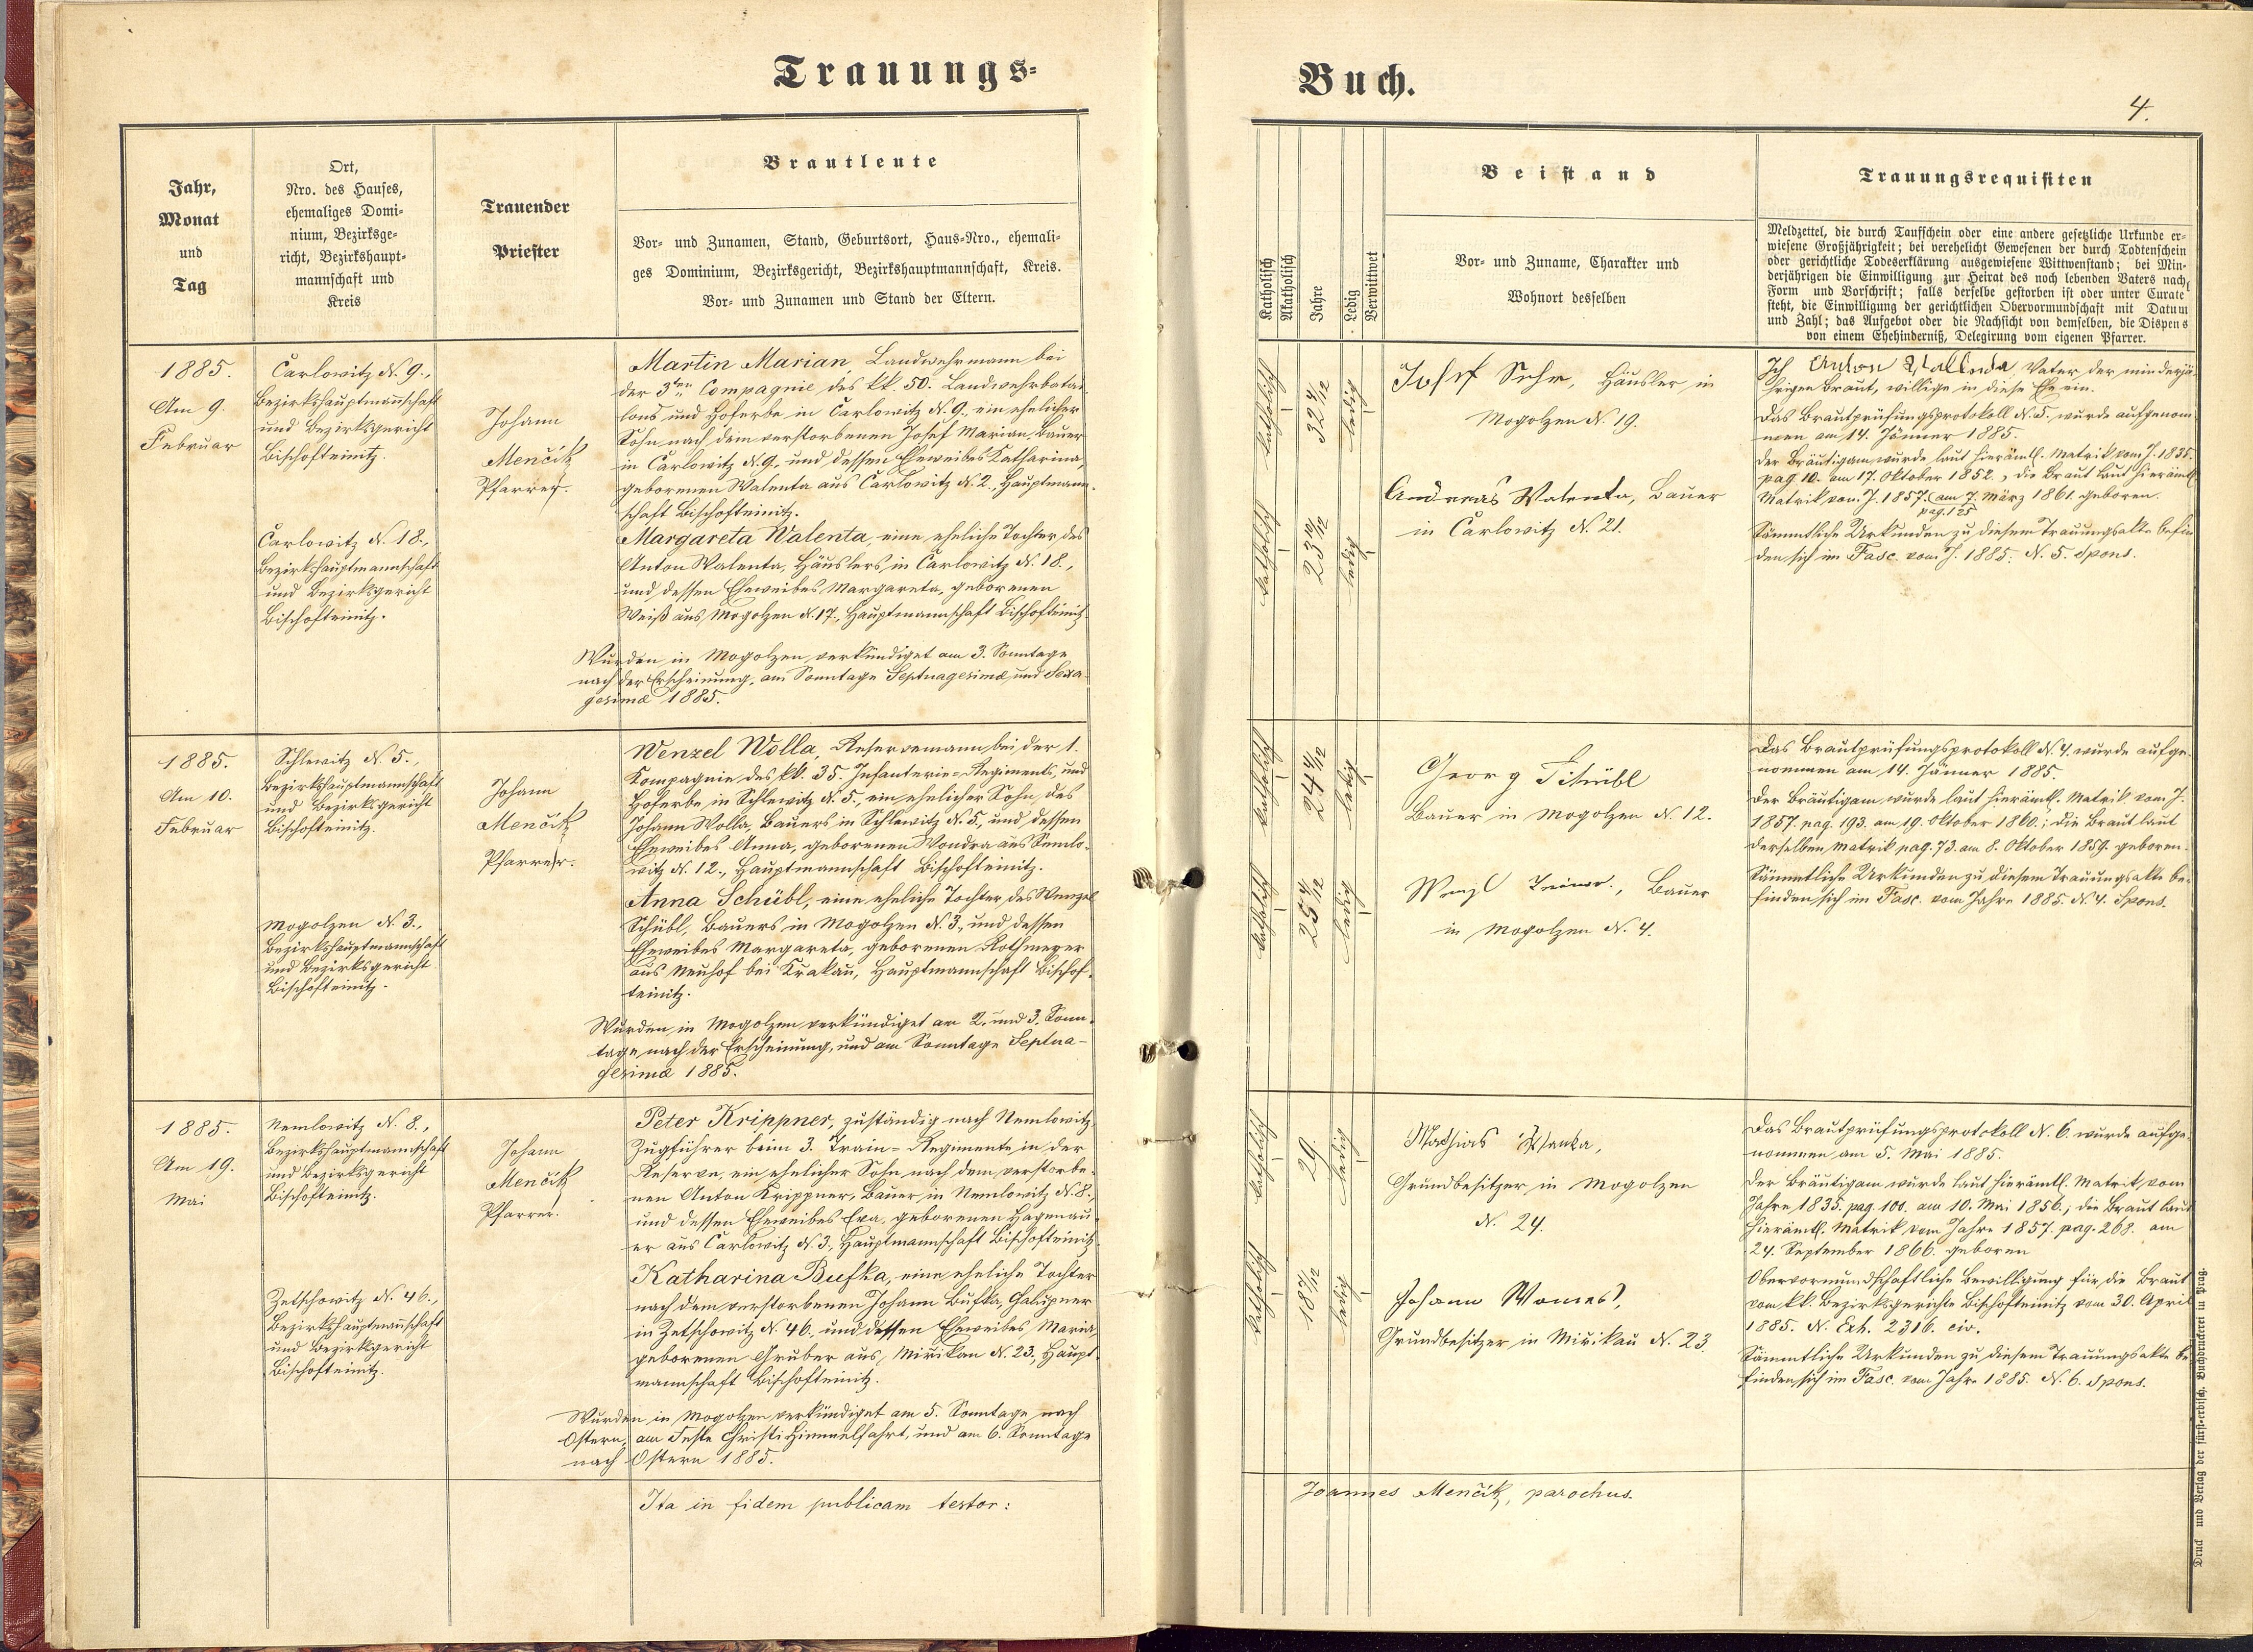 Trauungs-
Buch.
4.
Jahr,
Monat
und
Tag
Ort,
Nro. des Hauses,
ehemaliges Domi-
nium, Bezirksge-
richt, Bezirkshaupt-
mannschaft und
Kreis
Trauender
Priester
Brautleute
Vor- und Zunamen, Stand, Geburtsort, Haus-Nro., ehemali-
ges Dominium, Bezirksgericht, Bezirkshauptmannschaft, Kreis.
Vor- und Zunamen und Stand der Eltern.
Katholisch
Akatholisch
Jahre
Ledig
Verwittwet
Beistand
Vor- und Zuname, Charakter und
Wohnort desselben
Trauungsrequisiten
Meldzettel, die durch Taufschein oder eine andere gesetzliche Urkunde er-
wiesene Großjährigkeit; bei verehelicht Gewesenen der durch Todtenschein
oder gerichtliche Todeserklärung ausgewiesene Wittwenstand; bei Min-
derjährigen die Einwilligung zur Heirat des noch lebenden Vaters nach
Form und Vorschrift; falls derselbe gestorben ist oder unter Curate
steht, die Einwilligung der gerichtlichen Obervormundschaft mit Datum
und Zahl; das Aufgebot oder die Nachsicht von demselben, die Dispens
von einem Ehehinderniß, Delegirung vom eigenen Pfarrer.
1885.
Am 9.
Februar
Carlowitz N. 9.,
Bezirkshauptmannschaft
und Bezirksgericht
Bischofteinitz.
Carlowitz N. 18.,
Bezirkshauptmannschaft
und Bezirksgericht
Bischofteinitz.
Johann
Menčik
Pfarrer.
Martin Marian, Landwehrmann bei
der 3ten Compagnie des kk. 50. Landwehrbatai-
lons und Hoferbe in Carlowitz N. 9. ein ehelicher
Sohn nach dem verstorbenen Josef Marian, Bauer
in Carlowitz N. 9., und dessen Eheweibes Katharina,
geborenen Walenta aus Carlowitz N. 2., Hauptmann-
schaft Bischofteinitz.
Margareta Walenta, eine eheliche Tochter des
Anton Walenta, Häuslers in Carlowitz N. 18.,
und dessen Eheweibes Margareta, geborenen
Weiß aus Mogolzen N. 17., Hauptmannschaft Bischofteinitz.
Wurden in Mogolzen verkündiget am 3. Sonntage
nach der Erscheinung, am Sonntage Septuagesimä und Sexa-
gesimä 1885.
katholisch
32 4/12
ledig
katholisch
23 11/12
ledig
Josef Sehr, Häusler in
Mogolzen N. 19.
Andreas Walenta, Bauer
in Carlowitz N. 21.
Ich Anton Wallenda Vater der minderjä-
hrigen Braut, willige in diese Ehe ein.
Das Brautprüfungsprotokoll N. 5. wurde aufgenom-
men am 14. Jänner 1885.
Der Bräutigam wurde laut hierämtl. Matrik vom J. 1835.
pag 10. am 17. Oktober 1852., die Braut laut hierämtl.
Matrik vom J. 1857. am 7. März 1861. geboren.
pag. 125
Sämmtliche Urkunden zu diesem Trauungsakte befin-
den sich im Fasc. vom J. 1885. N. 5. Spons.
1885.
Am 10.
Februar
Schlewitz N. 5.,
Bezirkshauptmannschaft
und Bezirksgericht
Bischofteinitz.
Mogolzen N. 3.,
Bezirkshauptmannschaft
und Bezirksgericht
Bischofteinitz.
Johann
Menčik
Pfarrer.
Wenzel Wolla, Reservemann bei der 1.
Kompagnie des kk. 35. Infanterie-Regiments, und
Hoferbe in Schlewitz N. 5., ein ehelicher Sohn des
Johann Wolla, Bauers in Schlewitz N. 5., und dessen
Eheweibes Anna, geborenen Wondra aus Semlo-
witz N. 12., Hauptmannschaft Bischofteinitz.
Anna Schübl, eine eheliche Tochter des Wenzel
Schübl, Bauers in Mogolzen N. 3., und dessen
Eheweibes Margareta, geborenen Rothmeyer
aus Neuhof bei Krakau, Hauptmannschaft Bischof-
teinitz.
Wurden in Mogolzen verkündiget am 2. und 3. Sonn-
tage nach der Erscheinung, und am Sonntage Septua-
gesimä 1885.
katholisch
24 4/12
ledig
katholisch
25 4/12
ledig
Georg Schübl
Bauer in Mogolzen N. 12.
Wenzl, Bauer
in Mogolzen N. 4.
Das Brautprüfungsprotokoll N. 4. wurde aufge-
nommen am 14. Jänner 1885.
Der Bräutigam wurde laut hierämtl. Matrik vom J.
1857. pag. 193. am 19. Oktober 1860.; die Braut laut
derselben Matrik pag. 73. am 8. Oktober 1859. geboren.
Sämmtliche Urkunden zu diesem Trauungsakte be-
finden sich im Fasc. vom Jahre 1885. N. 4. Spons.
1885.
Am 19.
Mai
Nemlowitz N. 8.,
Bezirkshauptmannschaft
und Bezirksgericht
Bischofteinitz.
Zetschowitz N. 46.,
Bezirkshauptmannschaft
und Bezirksgericht
Bischofteinitz.
Johann
Menčik
Pfarrer.
Peter Krippner, zuständig nach Nemlowitz
Zugführer beim 3. Train-Regimente in der
Reserve, ein ehelicher Sohn nach dem verstorbe-
nen Anton Krippner, Bauer in Nemlowitz N. 8.,
und dessen Eheweibes Eva, geborenen Hagenau-
er aus Carlowitz N. 3., Hauptmannschaft Bischofteinitz.
Katharina Bufka, eine eheliche Tochter
nach dem verstorbenen Johann Bufka, Chalupner
in Zetschowitz N. 46., und dessen Eheweibes Maria,
geborenen Gruber aus Mirikau N. 23., Haupt-
mannschaft Bischofteinitz.
Wurden in Mogolzen verkündiget am 5. Sonntage nach
Ostern, am Feste Christi Himmelfahrt, und am 6. Sonntage
nach Ostern 1885.
katholisch
29.
ledig
katholisch
18 8/12
ledig
Mathias,
Grundbesitzer in Mogolzen
N. 24.
Johann Womes,
Grundbesitzer in Mirikau N. 23.
Das Brautprüfungsprotokoll N. 6. wurde aufge-
nommen am 5. Mai 1885.
Der Bräutigam wurde laut hierämtl. Matrik vom
Jahre 1835. pag. 100. am 10. Mai 1856.; die Braut laut
hierämtl. Matrik vom Jahre 1857. pag. 268. am
24. September 1866. geboren
Obervormundschaftliche Bewilligung für die Braut
vom kk. Bezirksgerichte Bischofteinitz vom 30. April
1885. N. Exh. 2316. civ.
Sämmtliche Urkunden zu diesem Trauungsakte be-
finden sich im Fasc. vom Jahre 1885. N. 6. Spons.
Ita in fidem publicam testor:
Joannes Menčik, parochus.
Druck und Verlag der fürst-erzbisch. Buchdruckerei in Prag.